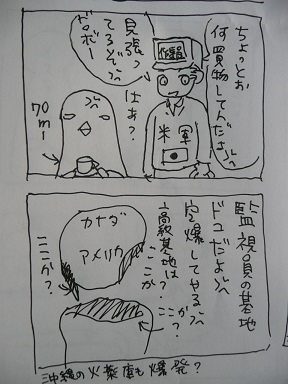 ちょっとお
何買物してんだよ
見張っ
てろぞ
ドロボー
はあ?
米軍
フロm
監視員の基地
ドコだよ
空爆してやる
高級基地は
ここか?
ここか?
カナダ
アメリカ
ここか?
沖縄の火薬庫も爆発?